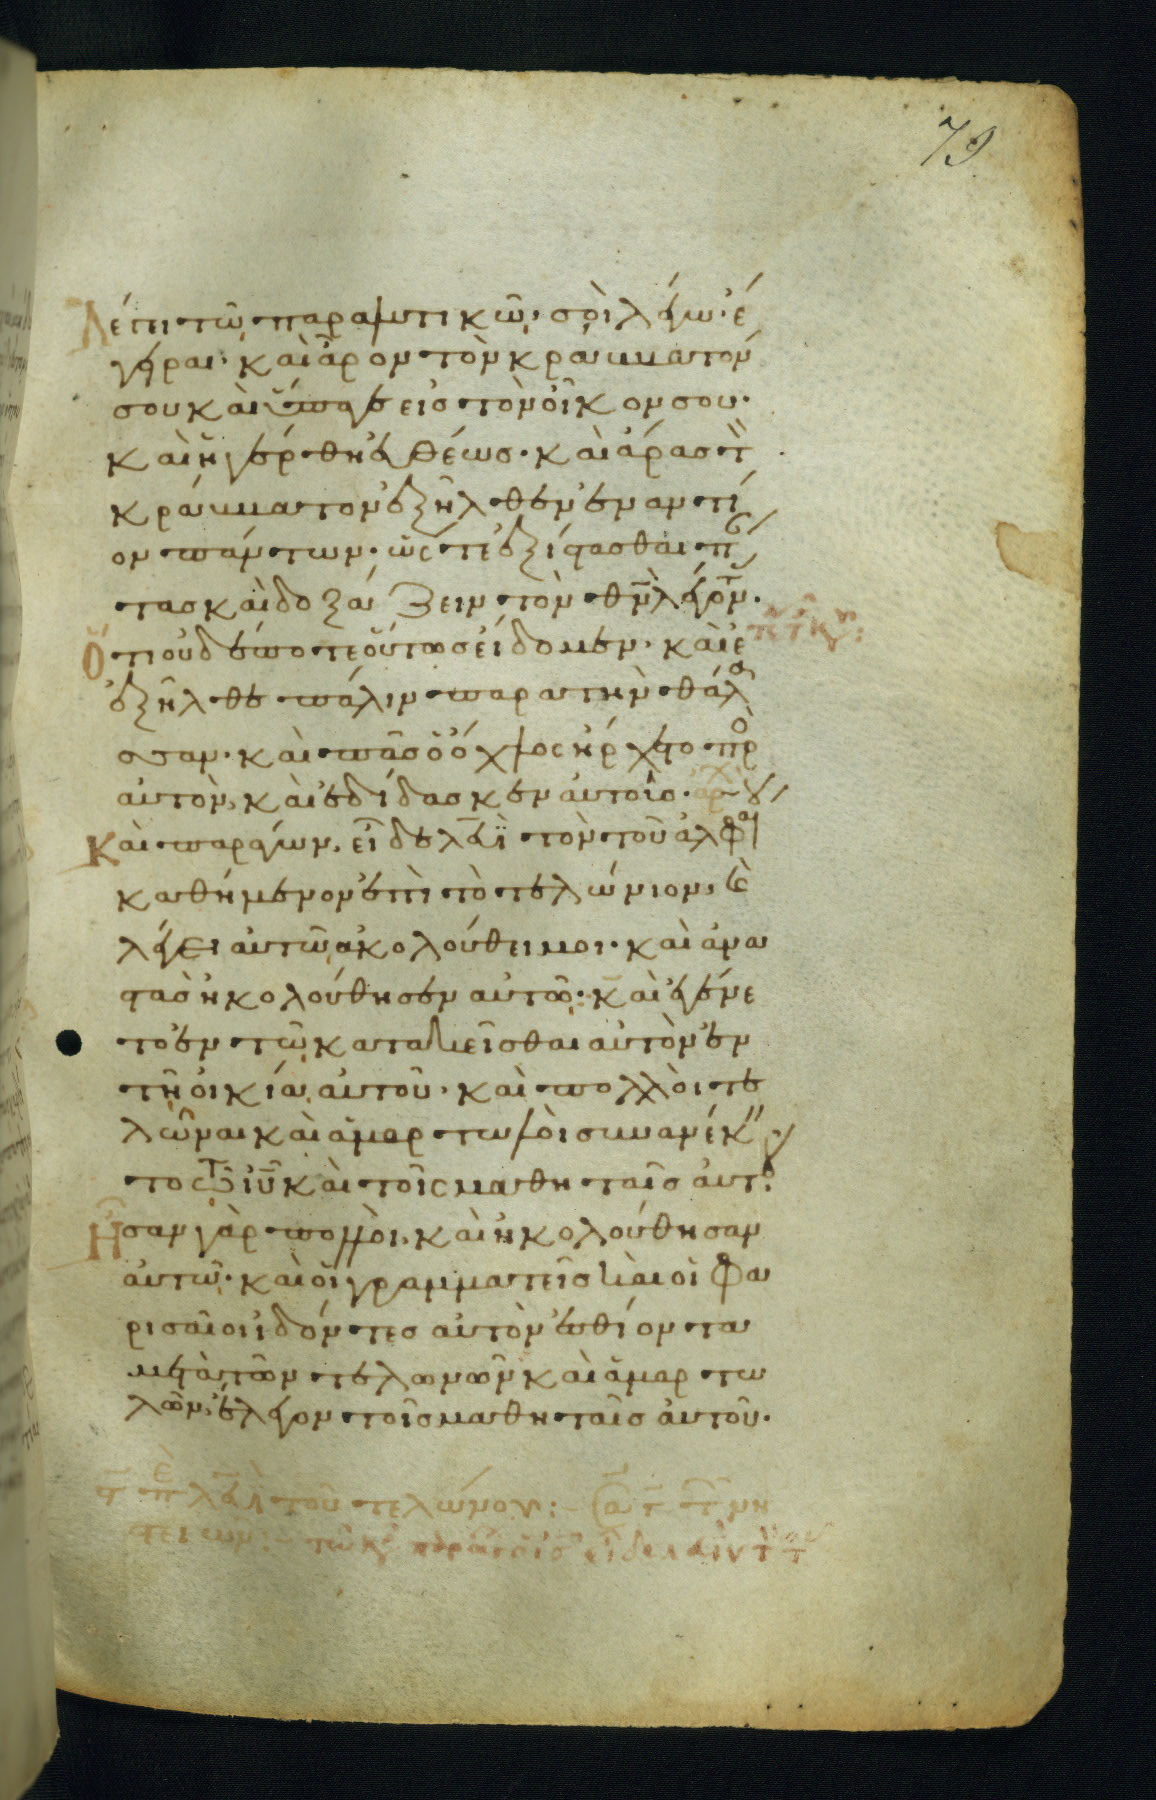 79
Λέγει τῶ παραλυτικῶ· σοὶ λέγω· ἔ
γειραι· καὶ ἆρον τὸν κράββατόν
σου καὶ ὕπαγε εἰς τὸν οἶκον σου·
καὶ ἠγέρθη εὐθέως· καὶ ἄρας τὸ
κράββατον ἐξῆλθεν ἐναντί
ον πάντων· ὥστε ἐξίστασθαι πά
τας καὶ δοξάζειν τὸν θν λέγοντ·
Ὅτι οὐδέποτε οὕτως εἴδομεν· καὶ ἐ
ἐξῆλθε πάλιν παρα τὴν θάλα
σσαν· καὶ πᾶς ὁ ὄχλος ἤρχετο πρ
αὐτὸν, καὶ ἐδίδασκεν αὐτοῖς·
Καὶ παράγων, εἶδε λευὶ τὸν τοῦ ἀλφαι
καθήμενον ἐπὶ τὸ τελώνιον, καὶ
λέγει αὐτῶ, ἀκολούθει μοι· καὶ ἀνα
στὰς ἠκολούθησεν αὐτῶ· καὶ ἐγένε
το ἐν τῶ κατακεῖσθαι αὐτὸν ἐν
τῆ οἰκία αὐτοῦ· καὶ πολλοὶ τε
λῶναι καὶ ἁμαρτωλοὶ συνανέκειν
το τῶ ιυ καὶ τοῖς μαθηταῖς αὐτου
Ἦσαν γὰρ πολλοὶ, καὶ ἠκολούθησαν
αὐτῶ· καὶ οἱ γραμματεῖς καὶ οἱ φα
ρισαῖοι ἰδόντες αὐτὸν ἐσθίοντα
μετὰ τῶν τελωνῶν καὶ ἁμαρτω
λῶν, ἔλεγον τοῖς μαθηταῖς αὐτοῦ·
τοῦ τελώνου: